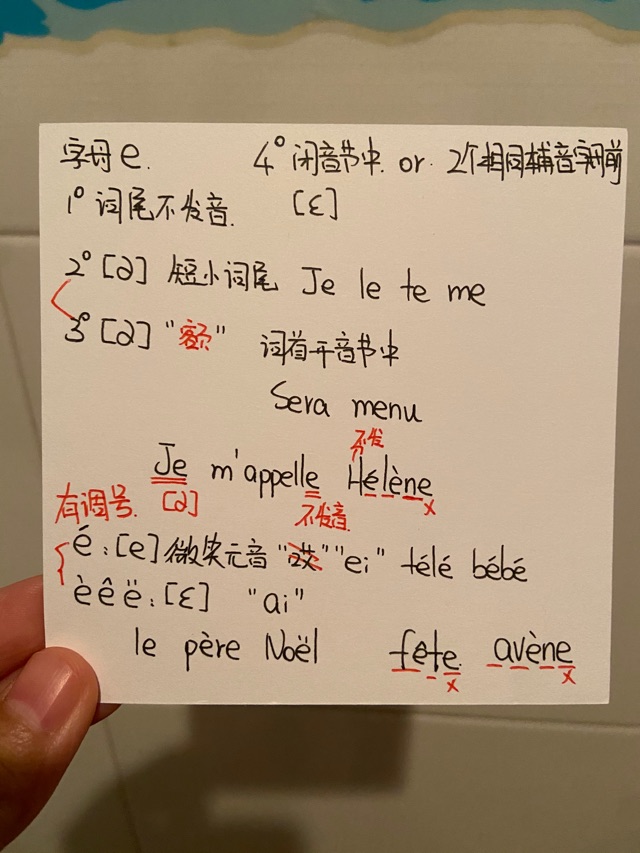 字母e.
4° 闭音节中. or. 2个相同辅音字母前
[ɛ]
1° 词尾不发音.
2° [ə] 短小词尾 Je le te me
3° [ə] "额" 词首开音节中
Sera menu
不发
Je m'appelle Hélène
x
有调号. [ə] 不发音.
é : [e] 微笑元音 "哎" "ei" télé bébé
è ê ë : [ɛ] "ai"
le père Noël fête. avène
x x